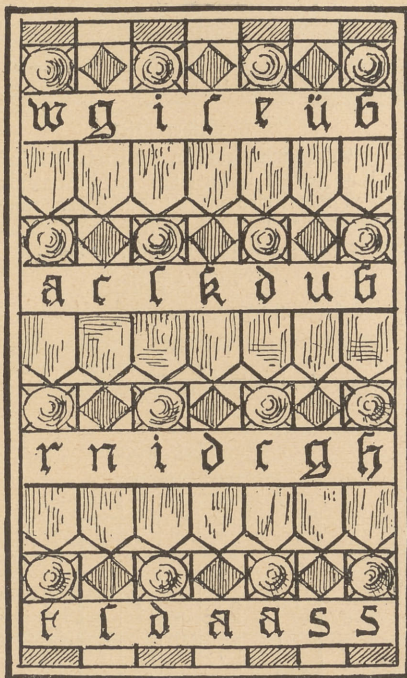 w g i l e ü b
a c l k d u b
r n i d c g h
t l d a a s s